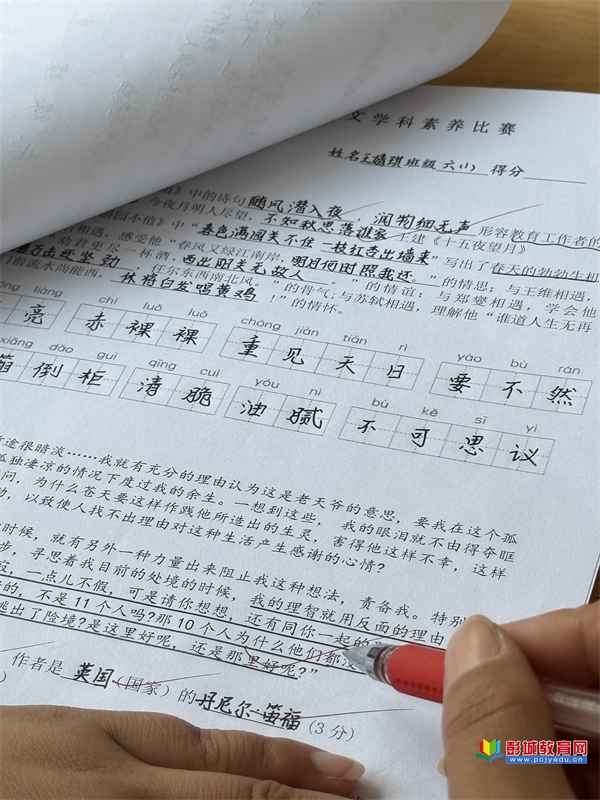 文学科素养比赛
姓名王嬉琪班级六(1)得分
》中的诗句随风潜入夜,润物细无声形容教育工作者的
今夜月明人尽望,不知秋思落谁家王建《十五夜望月》
游园不值》中“春色满园关不住一枝红杏出墙来”写出了春天的勃勃生机
相遇,感受他“春风又绿江南岸,明月何时照我还。”的情思;与王维相遇,
劝君更尽一杯酒,西出阳关无故人。”的情谊;与郑燮相遇,学会他
万击还坚劲,任尔东西南北风。”的骨气;与苏轼相遇,理解他“谁道人生无再
门前流水尚能西,休将白发唱黄鸡!”的情怀。
liàng chì luǒ luǒ chóng jiàn tiān rì yào bù rán
亮 赤裸裸 重见天日 要不然
xiāng dǎo guì qīng cuì yóu nì bù kě sī yì
箱倒柜 清脆 油腻 不可思议
途很暗淡……我就有充分的理由认为这是老天爷的意思,要我在这个孤
孤独凄凉的情况下度过我的余生。一想到这些,我的眼泪就不由得夺眶
问,为什么苍天要这样作践他所造出的生灵,害得他这样不幸,这样
助,以致使人找不出理由对这种生活产生感谢的心情?
时候,就有另外一种力量出来阻止我这种想法,责备我。特别
步,寻思着我目前的处境的时候,我的理智就用反面的理由
寂,一点儿不假,可是请你想想,还有同你一起的
的,不是11个人吗?那10个人为什么他们都
逃出了险境?是这里好呢,还是那里好呢?”
作者是英国(国家)的丹尼尔·笛福(3分)
彭城教育网
www.pcjyedu.cn